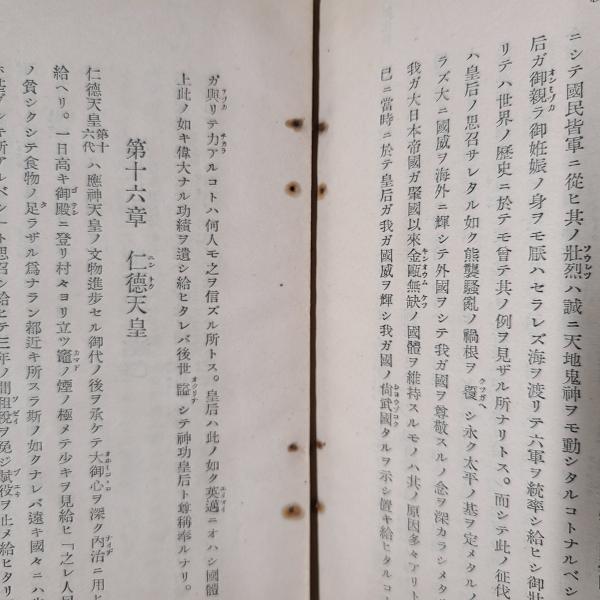 ニシテ國民皆軍ニ從ヒ其ノ壯烈ハ誠ニ天地鬼神ヲモ動シタルコトナルベシ
后ガ御親ラ御妊娠ノ身ヲモ厭ハセラレズ海ヲ渡リテ六軍ヲ統率シ給ヒシ御壯
リテハ世界ノ歷史ニ於テモ曾テ其ノ例ヲ見ザル所ナリトス。而シテ此ノ征伐
ハ皇后ノ思召サレタル如ク熊襲騷亂ノ禍根ヲ覆シ永ク太平ノ基ヲ定メタルノ
ラズ大ニ國威ヲ海外ニ輝シテ外國ヲシテ我ガ國ヲ尊敬スルノ念ヲ深カラシメタル
我ガ大日本帝國ガ肇國以來金甌無缺ノ國體ヲ維持スルモノハ其ノ原因多々アリト
已ニ當時ニ於テ皇后ガ我ガ國威ヲ輝シ我ガ國ノ尙武國タルヲ示シ置キ給ヒタルコト
ガ與リテ力アルコトハ何人モ之ヲ信ズル所トス。皇后ハ此ノ如ク英邁ニオハシ國體
上此ノ如キ偉大ナル功績ヲ遺シ給ヒタレバ後世諡シテ神功皇后ト尊稱奉ルナリ。
第十六章 仁德天皇
仁德天皇第十六代ハ應神天皇ノ文物進步セル御代ノ後ヲ承ケテ大御心ヲ深ク內治ニ用
給ヘリ。一日高キ御殿ニ登リ村々ヨリ立ツ竈ノ煙ノ極メテ少キヲ見給ヒ「之レ人民
ノ貧シクシテ食物ノ足ラザル爲ナラン都近キ所スラ斯ノ如クナレバ遠キ國々ニハ
ト思召シ給ヒテ三年ノ間租稅ヲ免ジ賦役ヲ止メ給ヒタリ